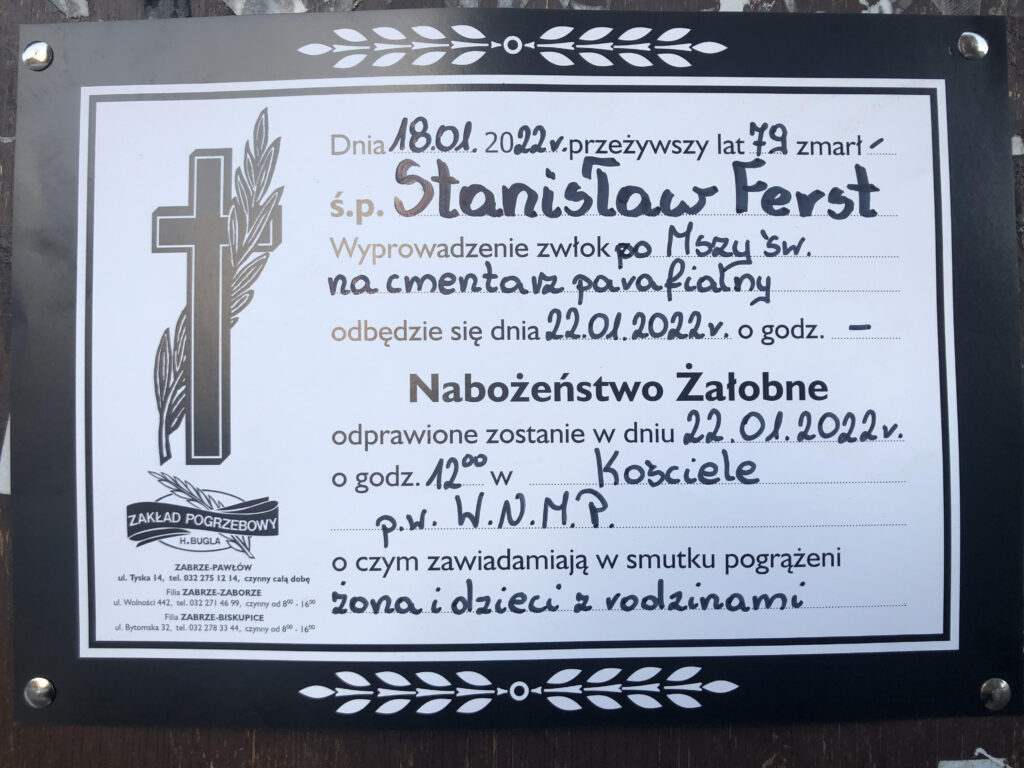 Dnia 18.01. 2022r. przeżywszy lat 79 zmarł -
ś.p. Stanisław Ferst
Wyprowadzenie zwłok po Mszy św.
na cmentarz parafialny
odbędzie się dnia 22.01.2022r. o godz. -
Nabożeństwo Żałobne
odprawione zostanie w dniu 22.01.2022r.
o godz. 12⁰⁰ w Kościele
p.w. W.N.M.P.
o czym zawiadamiają w smutku pogrążeni
żona i dzieci z rodzinami
ZAKŁAD POGRZEBOWY
H.BUGLA
ZABRZE-PAWŁÓW
ul. Tyska 14, tel. 032 275 12 14, czynny całą dobę
Filia ZABRZE-ZABORZE
ul. Wolności 442, tel. 032 271 46 99, czynny od 8⁰⁰ - 16⁰⁰
Filia ZABRZE-BISKUPICE
ul. Bytomska 32, tel. 032 278 33 44, czynny od 8⁰⁰ - 16⁰⁰